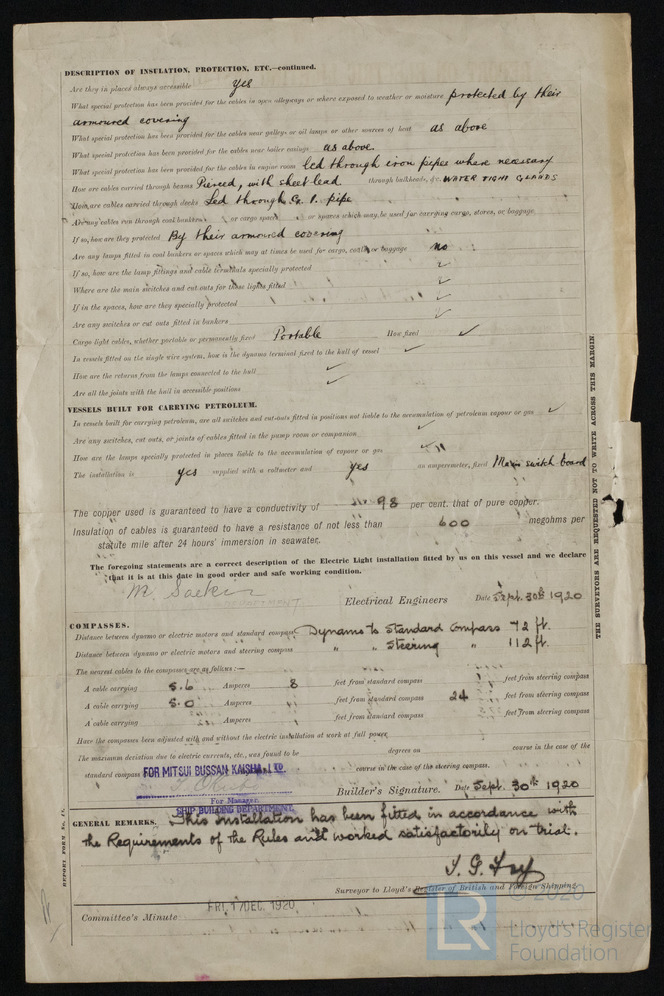 DESCRIPTION OF INSULATION, PROTECTION, ETC.—continued.
Are they in places always accessible yes
What special protection has been provided for the cables in open alleyways or where exposed to weather or moisture protected by their
armoured covering
What special protection has been provided for the cables near galleys or oil lamps or other sources of heat as above
What special protection has been provided for the cables near boiler casings as above.
What special protection has been provided for the cables in engine room led through iron pipes where necessary
How are cables carried through beams Pierced, with sheet lead through bulkheads, &c. WATER TIGHT GLANDS
How are cables carried through decks Led through G. I. pipe
Are any cables run through coal bunkers or cargo spaces or spaces which may be used for carrying cargo, stores, or baggage
If so, how are they protected By their armoured covering
Are any lamps fitted in coal bunkers or spaces which may at times be used for cargo, coals, or baggage no
If so, how are the lamp fittings and cable terminals specially protected ✓
Where are the main switches and cut outs for these lights fitted ✓
If in the spaces, how are they specially protected ✓
Are any switches or cut outs fitted in bunkers ✓
Cargo light cables, whether portable or permanently fixed Portable How fixed ✓
In vessels fitted on the single wire system, how is the dynamo terminal fixed to the hull of vessel ✓
How are the returns from the lamps connected to the hull ✓
Are all the joints with the hull in accessible positions ✓
VESSELS BUILT FOR CARRYING PETROLEUM.
In vessels built for carrying petroleum, are all switches and cut-outs fitted in positions not liable to the accumulation of petroleum vapour or gas ✓
Are any switches, cut outs, or joints of cables fitted in the pump room or companion ✓
How are the lamps specially protected in places liable to the accumulation of vapour or gas ✓
The installation is yes supplied with a voltmeter and yes an amperemeter, fixed Main switch board
The copper used is guaranteed to have a conductivity of 98 per cent. that of pure copper.
Insulation of cables is guaranteed to have a resistance of not less than 600 megohms per
statute mile after 24 hours' immersion in seawater.
The foregoing statements are a correct description of the Electric Light installation fitted by us on this vessel and we declare
that it is at this date in good order and safe working condition.
Electrical Engineers Date Sept. 30th 1920
COMPASSES.
Distance between dynamo or electric motors and standard compass Dynamo to Standard Compass 72 ft.
Distance between dynamo or electric motors and steering compass " " Steering " 112 ft.
The nearest cables to the compasses are as follows:—
A cable carrying 5.6 Amperes 8 feet from standard compass feet from steering compass
A cable carrying 5.0 Amperes feet from standard compass 24 feet from steering compass
A cable carrying Amperes feet from standard compass feet from steering compass
Have the compasses been adjusted with and without the electric installation at work at full power
The maximum deviation due to electric currents, etc., was found to be degrees on course in the case of the
standard compass course in the case of the steering compass.
FOR MITSUI BUSSAN KAISHA, LTD
For Manager.
SHIP BUILDING DEPARTMENT.
Builder's Signature. Date Sept. 30th 1920
GENERAL REMARKS. This installation has been fitted in accordance with
the Requirements of the Rules and worked satisfactorily on trial.
Surveyor to Lloyd's Register of British and Foreign Shipping.
Committee's Minute FRI. 17 DEC. 1920
THE SURVEYORS ARE REQUESTED NOT TO WRITE ACROSS THIS MARGIN.
© 2020
LR
Lloyd's Register
Foundation